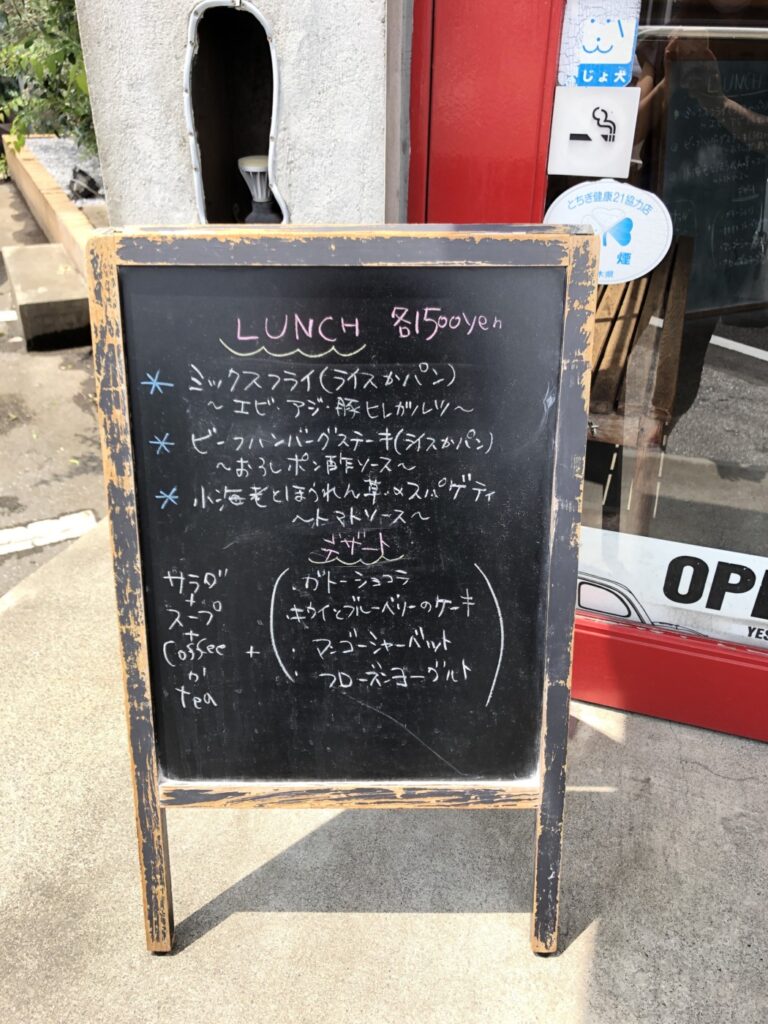 じょ犬
とちぎ健康21協力店
煙
LUNCH 各1500yen
* ミックスフライ(ライスかパン)
~エビ・アジ・豚ヒレカツレツ~
* ビーフハンバーグステーキ(ライスかパン)
~おろしポン酢ソース~
* 小海老とほうれん草のスパゲティ
~トマトソース~
デザート
サラダ
+
スープ
+
Coffee
か
tea
+
・ガトーショコラ
・キウイとブルーベリーのケーキ
・マンゴーシャーベット
・フローズンヨーグルト
OPE
YES